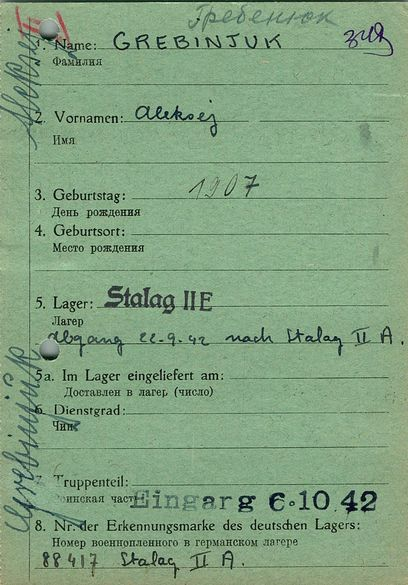 Гребенюк
1. Name: GREBINJUK
Фамилия
2. Vornamen: Aleksej
Имя
3. Geburtstag: 1907
День рождения
4. Geburtsort:
Место рождения
5. Lager: Stalag II E
Лагер
Abgang 22-9-42 nach Stalag II A.
5a. Im Lager eingeliefert am:
Доставлен в лагер (число)
6. Dienstgrad:
Чин
7. Truppenteil:
Воинская часть
Eingarg 6·10 42
8. Nr. der Erkennungsmarke des deutschen Lagers:
Номер военнопленного в германском лагере
88417 Stalag II A.
Grebinjuk